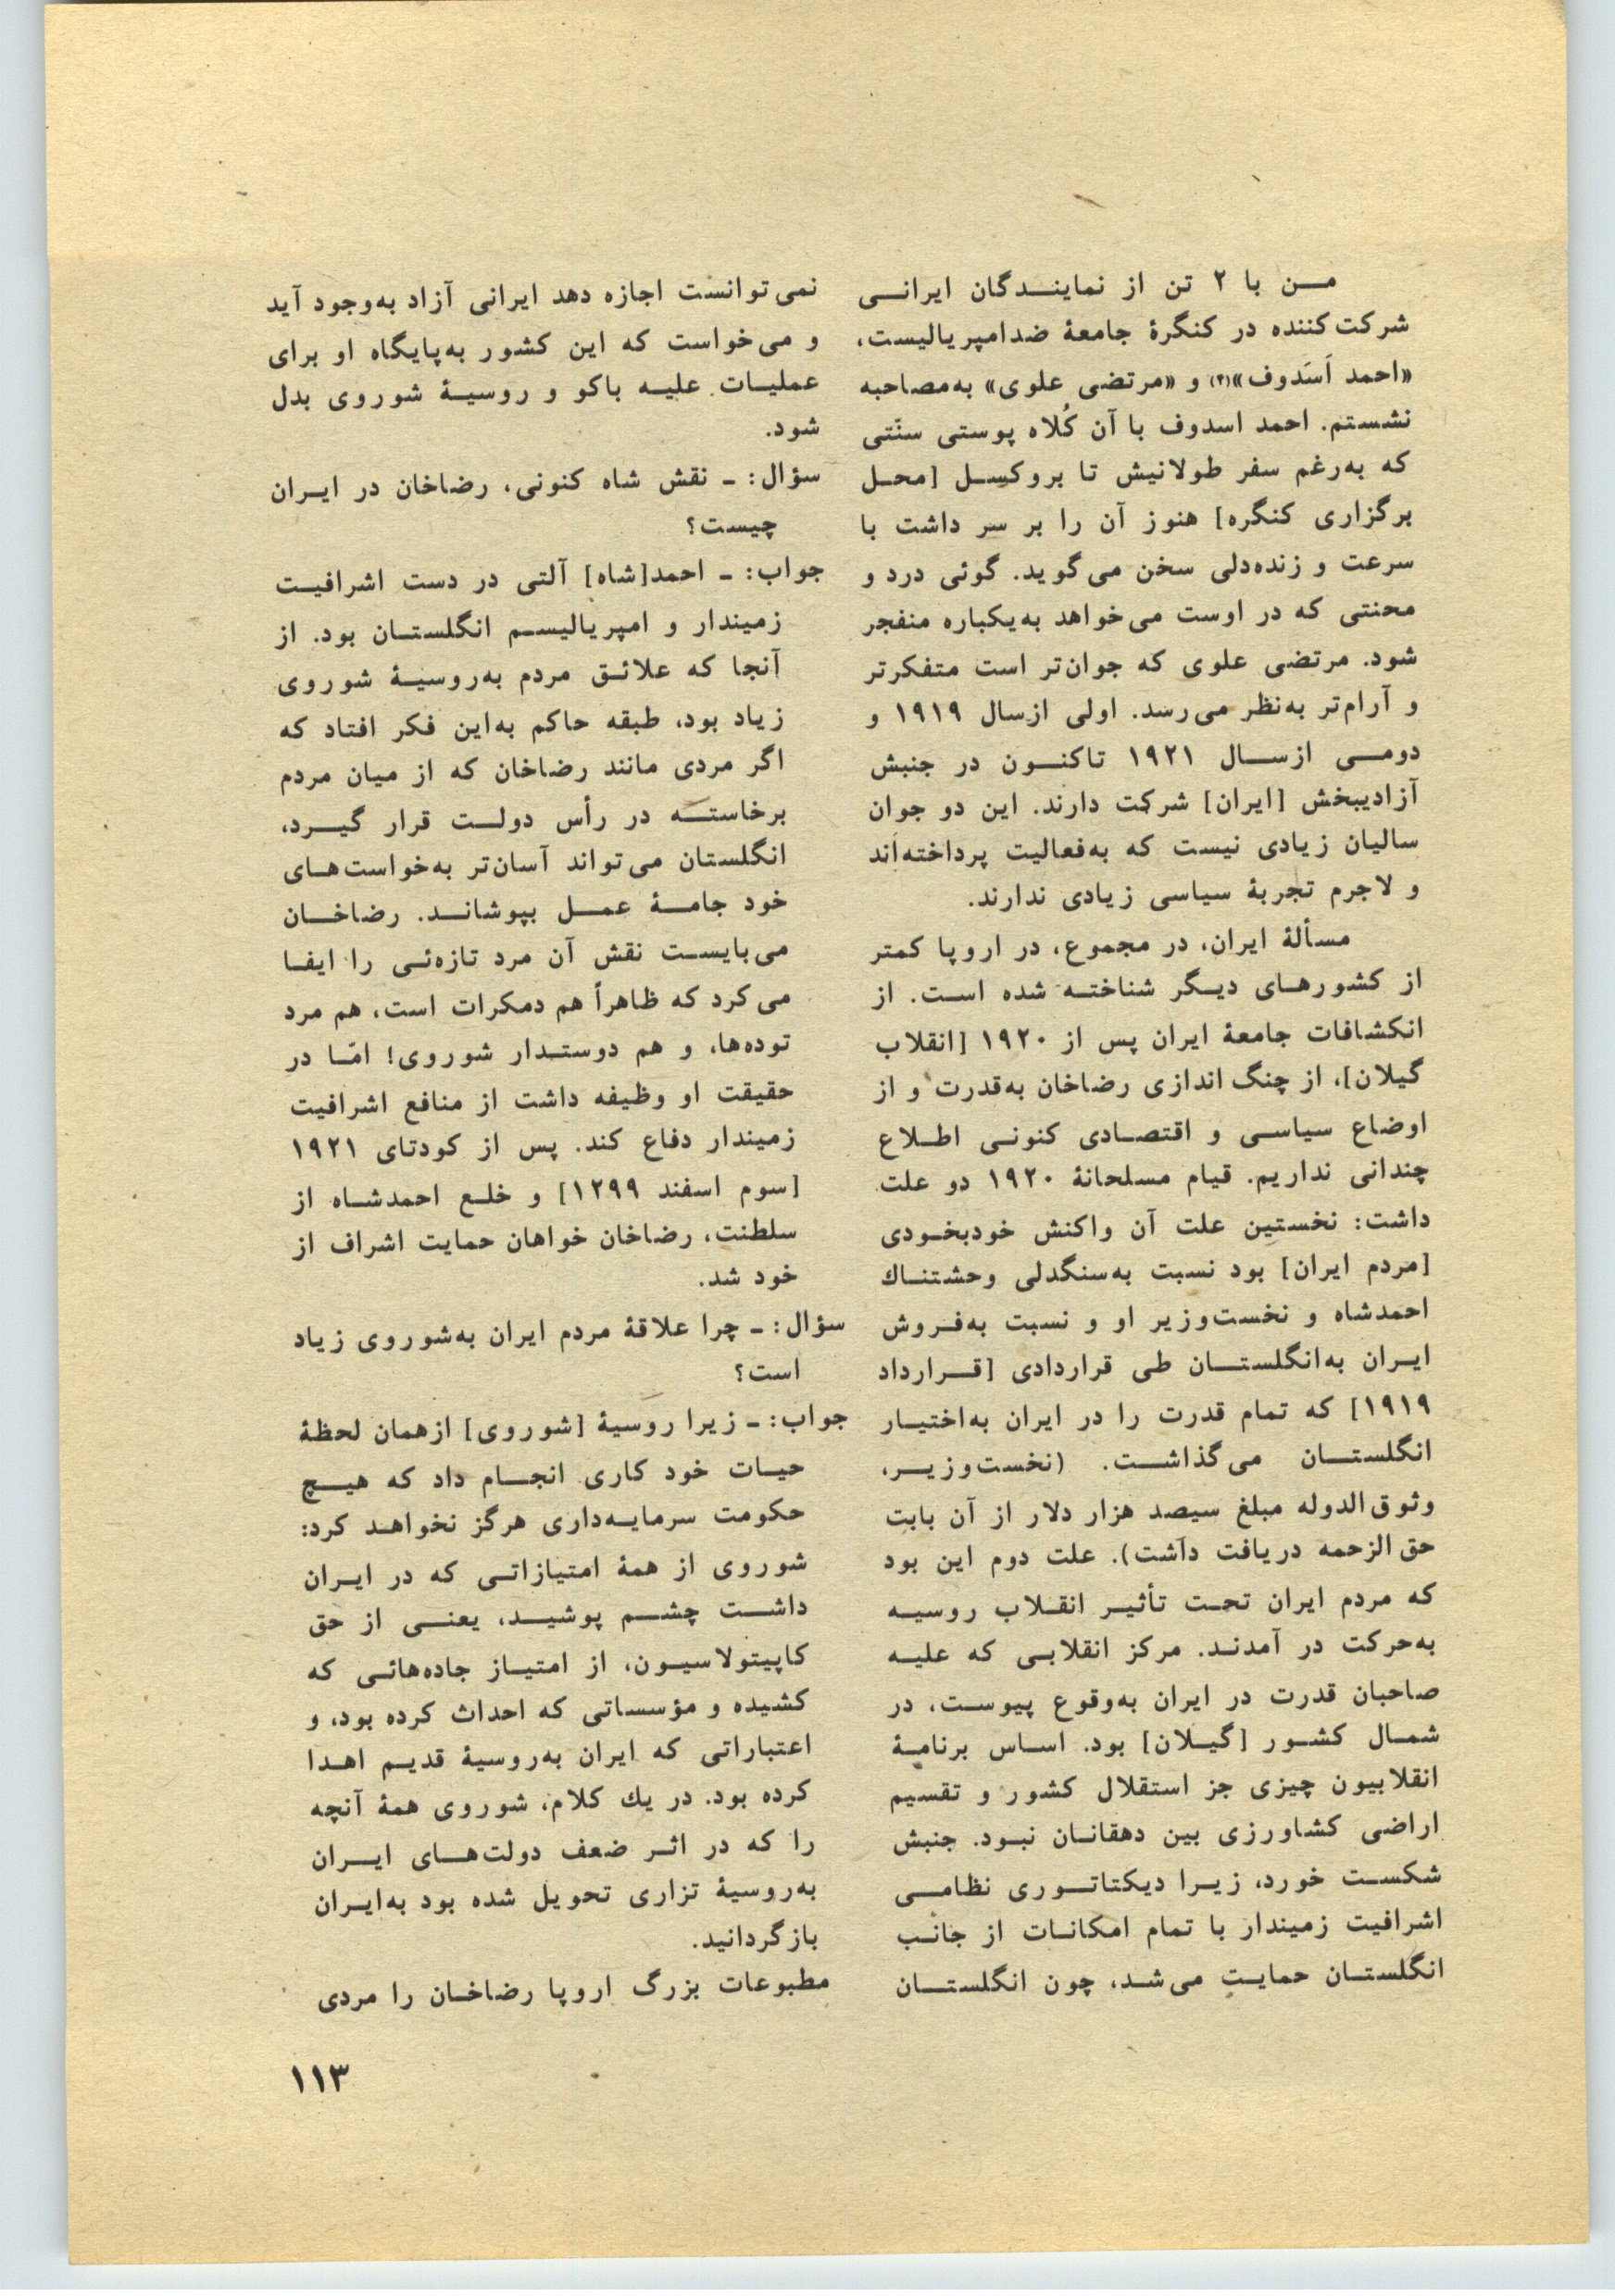 من با ۲ تن از نمایندگان ایرانی
شرکت‌کننده در کنگرهٔ جامعهٔ ضدامپریالیست،
«احمد اَسَدوف»(۴) و «مرتضی علوی» به‌مصاحبه
نشستم. احمد اسدوف با آن کُلاه پوستی سنّتی
که به‌رغم سفر طولانیش تا بروکسل [محل
برگزاری کنگره] هنوز آن را بر سر داشت با
سرعت و زنده‌دلی سخن می‌گوید. گوئی درد و
محنتی که در اوست می‌خواهد به‌یکباره منفجر
شود. مرتضی علوی که جوان‌تر است متفکرتر
و آرام‌تر به‌نظر می‌رسد. اولی ازسال ۱۹۱۹ و
دومی ازسال ۱۹۲۱ تاکنون در جنبش
آزادیبخش [ایران] شرکت دارند. این دو جوان
سالیان زیادی نیست که به‌فعالیت پرداخته‌اند
و لاجرم تجربهٔ سیاسی زیادی ندارند.
مسألهٔ ایران، در مجموع، در اروپا کمتر
از کشورهای دیگر شناخته شده است. از
انکشافات جامعهٔ ایران پس از ۱۹۲۰ [انقلاب
گیلان]، از چنگ اندازی رضاخان به‌قدرت و از
اوضاع سیاسی و اقتصادی کنونی اطلاع
چندانی نداریم. قیام مسلحانهٔ ۱۹۲۰ دو علت
داشت: نخستین علت آن واکنش خودبخودی
[مردم ایران] بود نسبت به‌سنگدلی وحشتناك
احمدشاه و نخست‌وزیر او و نسبت به‌فروش
ایران به‌انگلستان طی قراردادی [قرارداد
۱۹۱۹] که تمام قدرت را در ایران به‌اختیار
انگلستان می‌گذاشت. (نخست‌وزیر،
وثوق‌الدوله مبلغ سیصد هزار دلار از آن بابت
حق‌الزحمه دریافت داشت). علت دوم این بود
که مردم ایران تحت تأثیر انقلاب روسیه
به‌حرکت در آمدند. مرکز انقلابی که علیه
صاحبان قدرت در ایران به‌وقوع پیوست، در
شمال کشور [گیلان] بود. اساس برنامهٔ
انقلابیون چیزی جز استقلال کشور و تقسیم
اراضی کشاورزی بین دهقانان نبود. جنبش
شکست خورد، زیرا دیکتاتوری نظامی
اشرافیت زمیندار با تمام امکانات از جانب
انگلستان حمایت می‌شد، چون انگلستان
نمی‌توانست اجازه دهد ایرانی آزاد به‌وجود آید
و می‌خواست که این کشور به‌پایگاه او برای
عملیات علیه باکو و روسیهٔ شوروی بدل
شود.
سؤال: ـ نقش شاه کنونی، رضاخان در ایران
چیست؟
جواب: ـ احمد[شاه] آلتی در دست اشرافیت
زمیندار و امپریالیسم انگلستان بود. از
آنجا که علائق مردم به‌روسیهٔ شوروی
زیاد بود، طبقه حاکم به‌این فکر افتاد که
اگر مردی مانند رضاخان که از میان مردم
برخاسته در رأس دولت قرار گیرد،
انگلستان می‌تواند آسان‌تر به‌خواست‌های
خود جامهٔ عمل بپوشاند. رضاخان
می‌بایست نقش آن مرد تازه‌ئی را ایفا
می‌کرد که ظاهراً هم دمکرات است، هم مرد
توده‌ها، و هم دوستدار شوروی! امّا در
حقیقت او وظیفه داشت از منافع اشرافیت
زمیندار دفاع کند. پس از کودتای ۱۹۲۱
[سوم اسفند ۱۲۹۹] و خلع احمدشاه از
سلطنت، رضاخان خواهان حمایت اشراف از
خود شد.
سؤال: ـ چرا علاقهٔ مردم ایران به‌شوروی زیاد
است؟
جواب: ـ زیرا روسیهٔ [شوروی] ازهمان لحظهٔ
حیات خود کاری انجام داد که هیچ
حکومت سرمایه‌داری هرگز نخواهد کرد:
شوروی از همهٔ امتیازاتی که در ایران
داشت چشم پوشید، یعنی از حق
کاپیتولاسیون، از امتیاز جاده‌هائی که
کشیده و مؤسساتی که احداث کرده بود، و
اعتباراتی که ایران به‌روسیهٔ قدیم اهدا
کرده بود. در یك کلام، شوروی همهٔ آنچه
را که در اثر ضعف دولت‌های ایران
به‌روسیهٔ تزاری تحویل شده بود به‌ایران
بازگردانید.
مطبوعات بزرگ اروپا رضاخان را مردی
۱۱۳